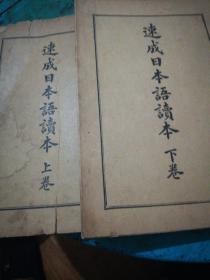 速成日本語讀本 上卷
速成日本語讀本 下卷